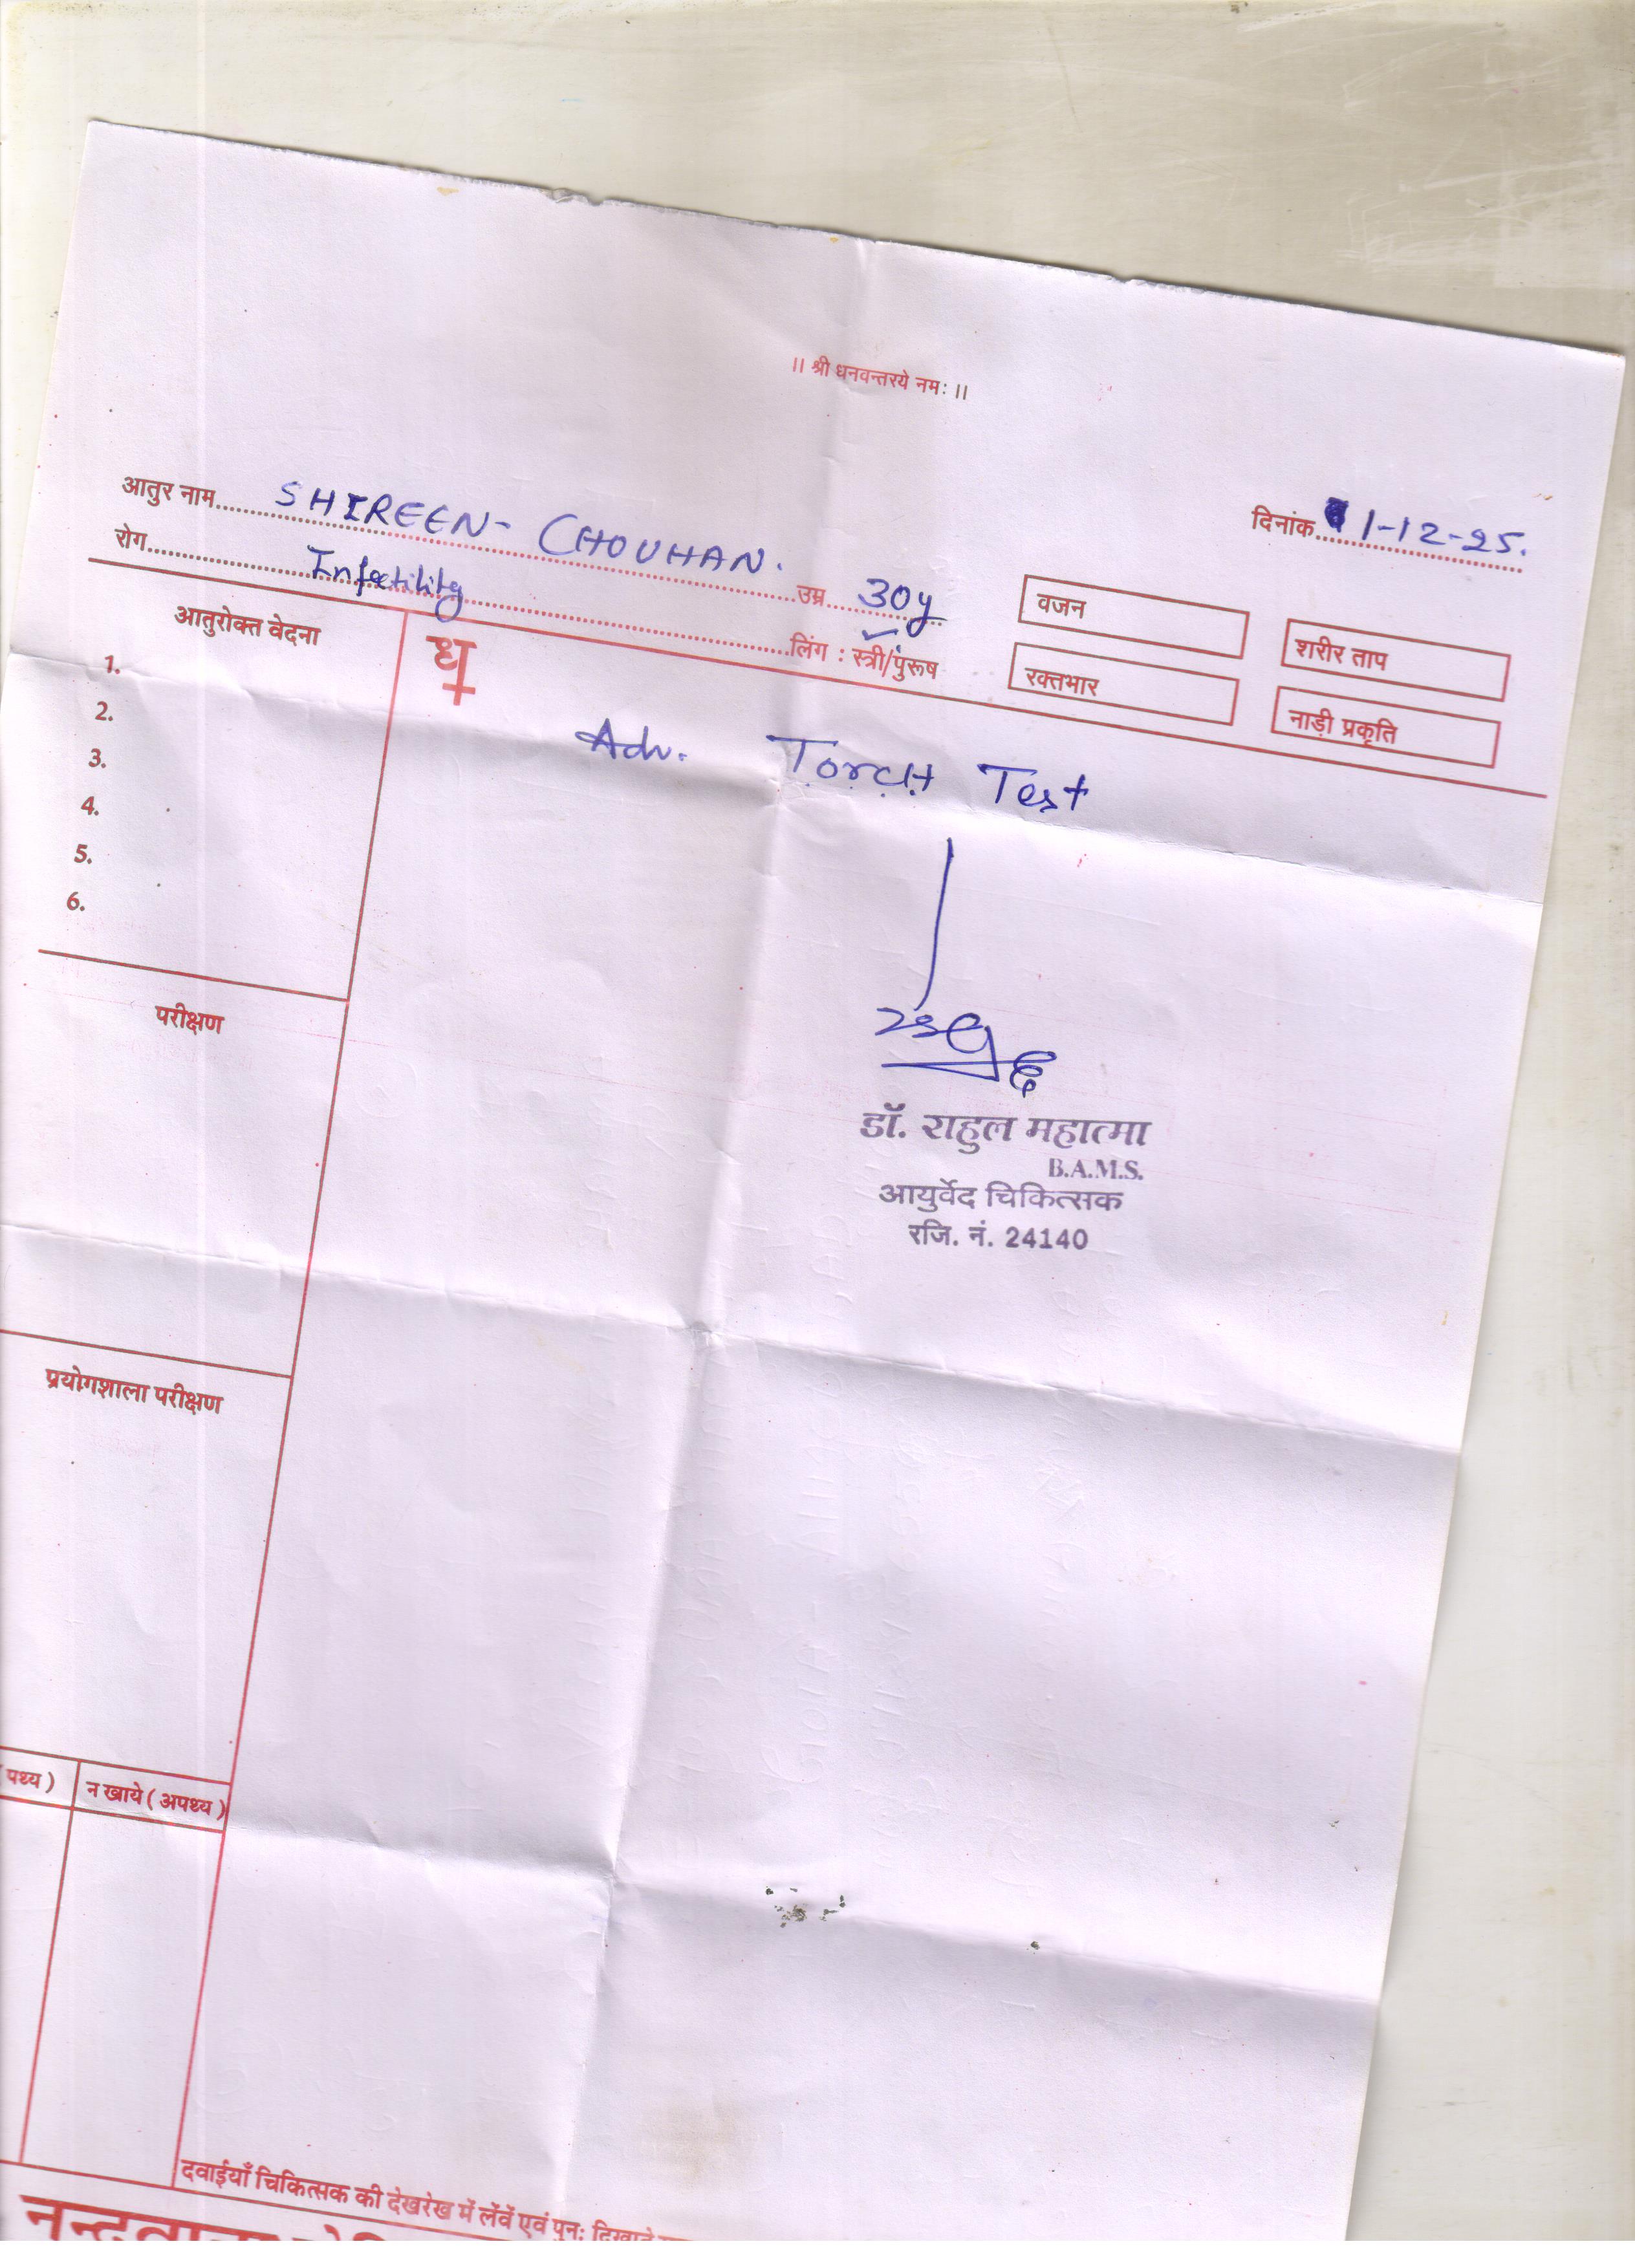 ॥ श्री धनवन्तरये नमः ॥
दिनांक 1-12-25.
आतुर नाम SHIREEN - CHOUHAN. उम्र 30y
रोग Infertility लिंग : स्त्री/पुरूष
वजन
शरीर ताप
रक्तभार
नाड़ी प्रकृति
आतुरोक्त वेदना
1.
2.
3.
4.
5.
6.
Adv. Torch Test
डॉ. राहुल महात्मा
B.A.M.S.
आयुर्वेद चिकित्सक
रजि. नं. 24140
परीक्षण
प्रयोगशाला परीक्षण
पथ्य ) न खाये ( अपथ्य )
दवाईयाँ चिकित्सक की देखरेख में लेंवें एवं पुनः